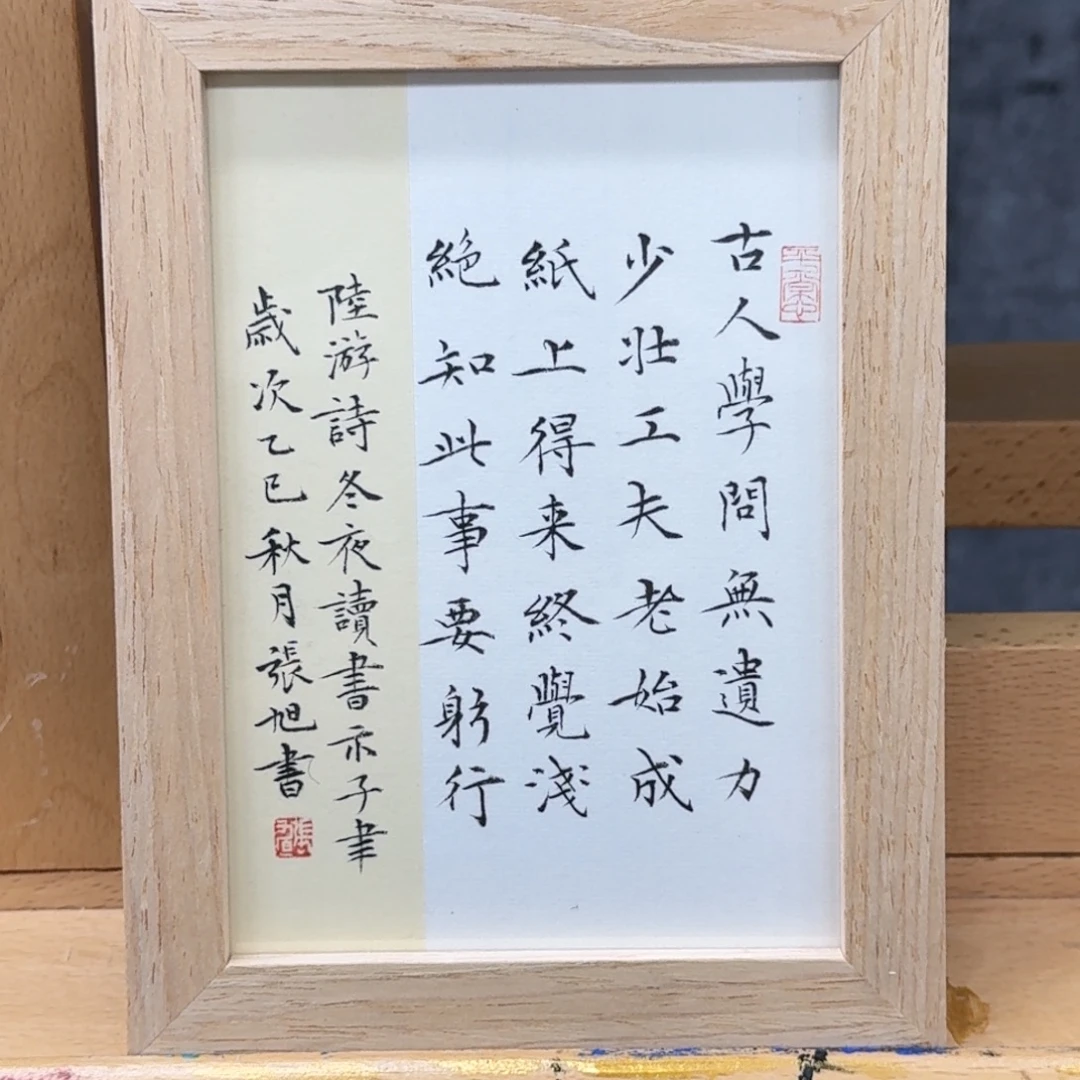 古人學問無遺力
少壯工夫老始成
紙上得来終覺淺
絶知此事要躬行
陸游詩冬夜讀書示子聿
歲次乙巳秋月張旭書